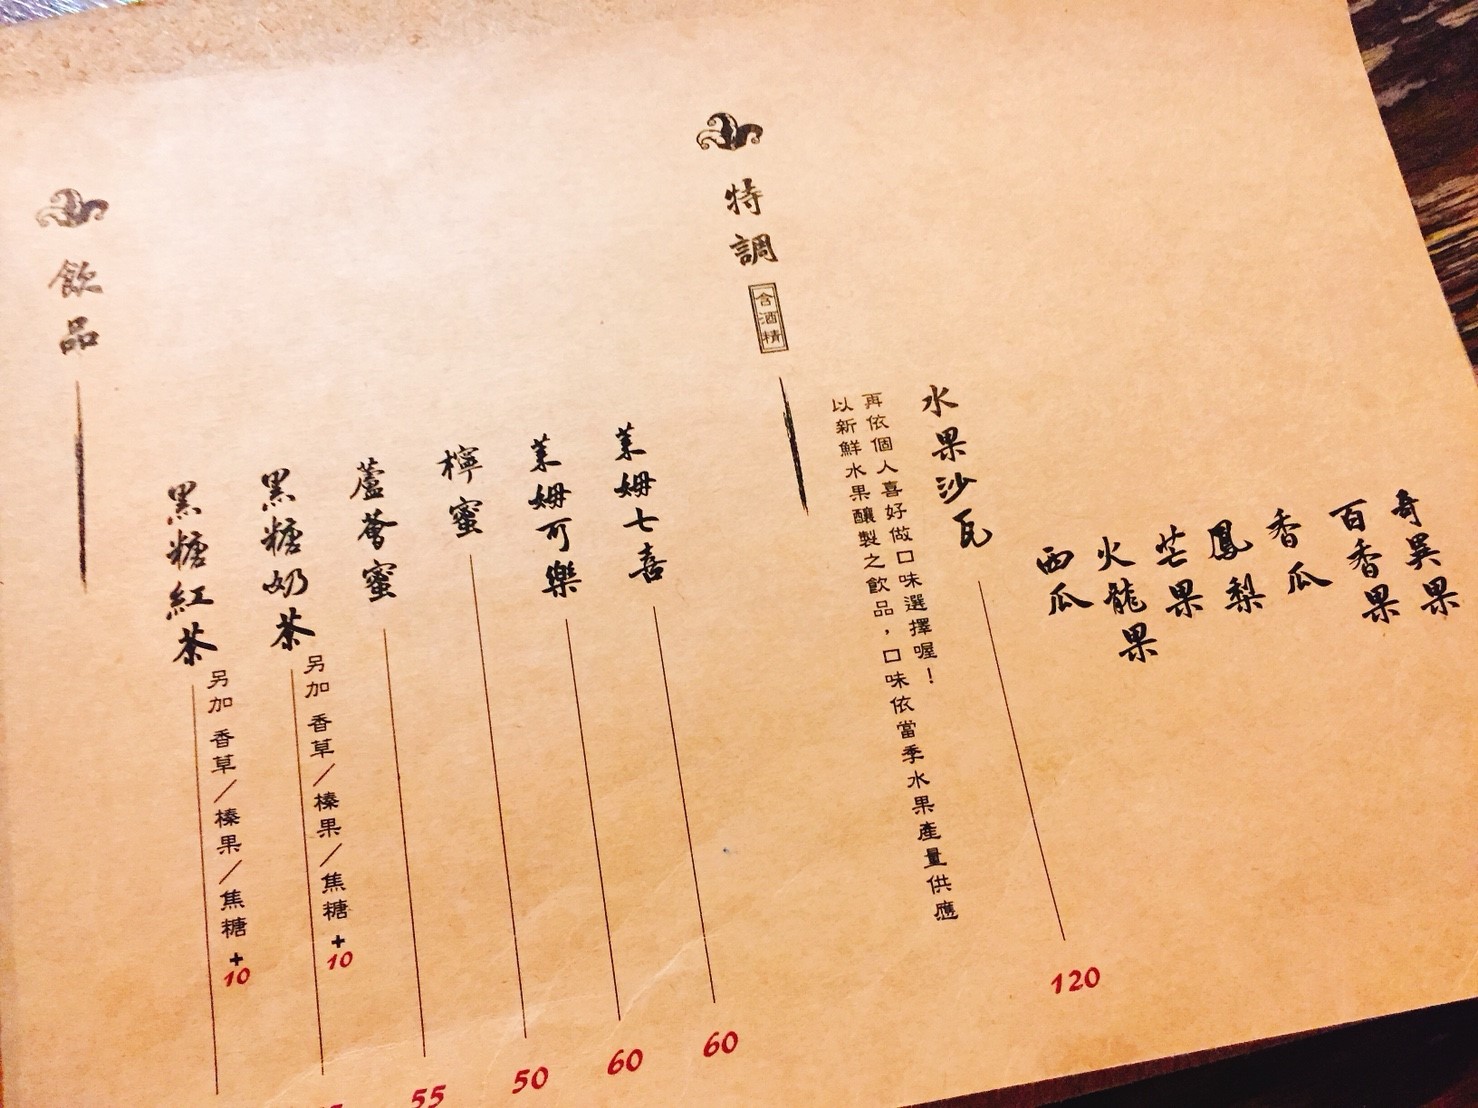 奇異果
百香果
香瓜
鳳梨
芒果
火龍果
西瓜
水果沙瓦
120
再依個人喜好做口味選擇喔！
以新鮮水果釀製之飲品，口味依當季水果產量供應
特調
含酒精
茉姆七喜
60
茉姆可樂
60
檸蜜
50
蘆薈蜜
55
黑糖奶茶
另加 香草／榛果／焦糖+10
黑糖紅茶
另加 香草／榛果／焦糖+10
飲品